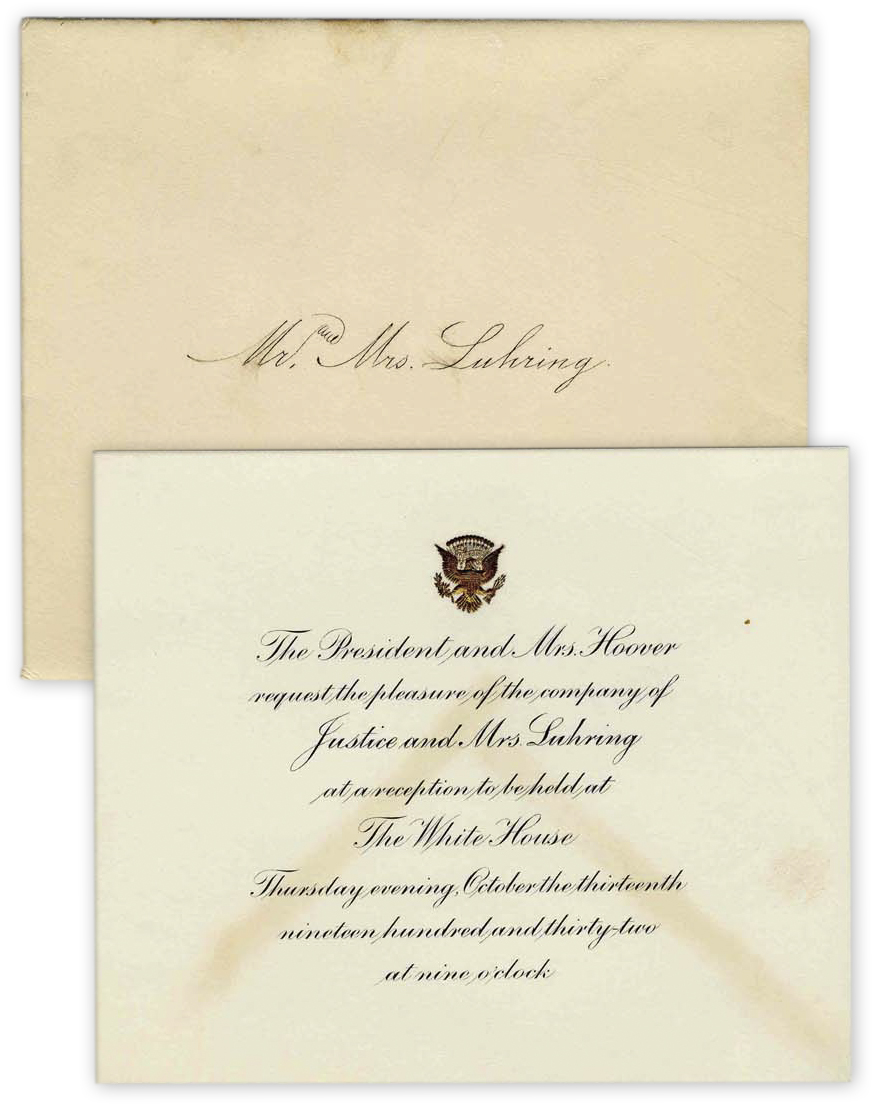 Mr. and Mrs. Luhring.
The President and Mrs. Hoover
request the pleasure of the company of
Justice and Mrs. Luhring
at a reception to be held at
The White House
Thursday evening, October the thirteenth
nineteen hundred and thirty-two
at nine o'clock